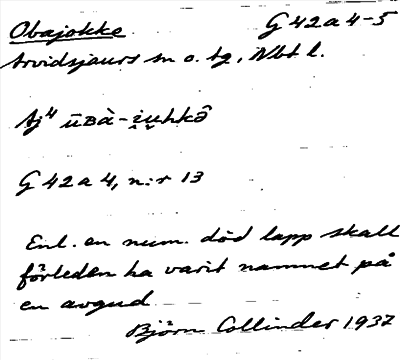 Obajokke G 42 a 4-5
Arvidsjaurs sn o. tg, Nbt l.
Aj⁴ ūʙà-i̯u̯hkô
G 42 a 4, n:r 13
Enl. en num. död lapp skall
förleden ha varit namnet på
en avgud
Björn Collinder 1937